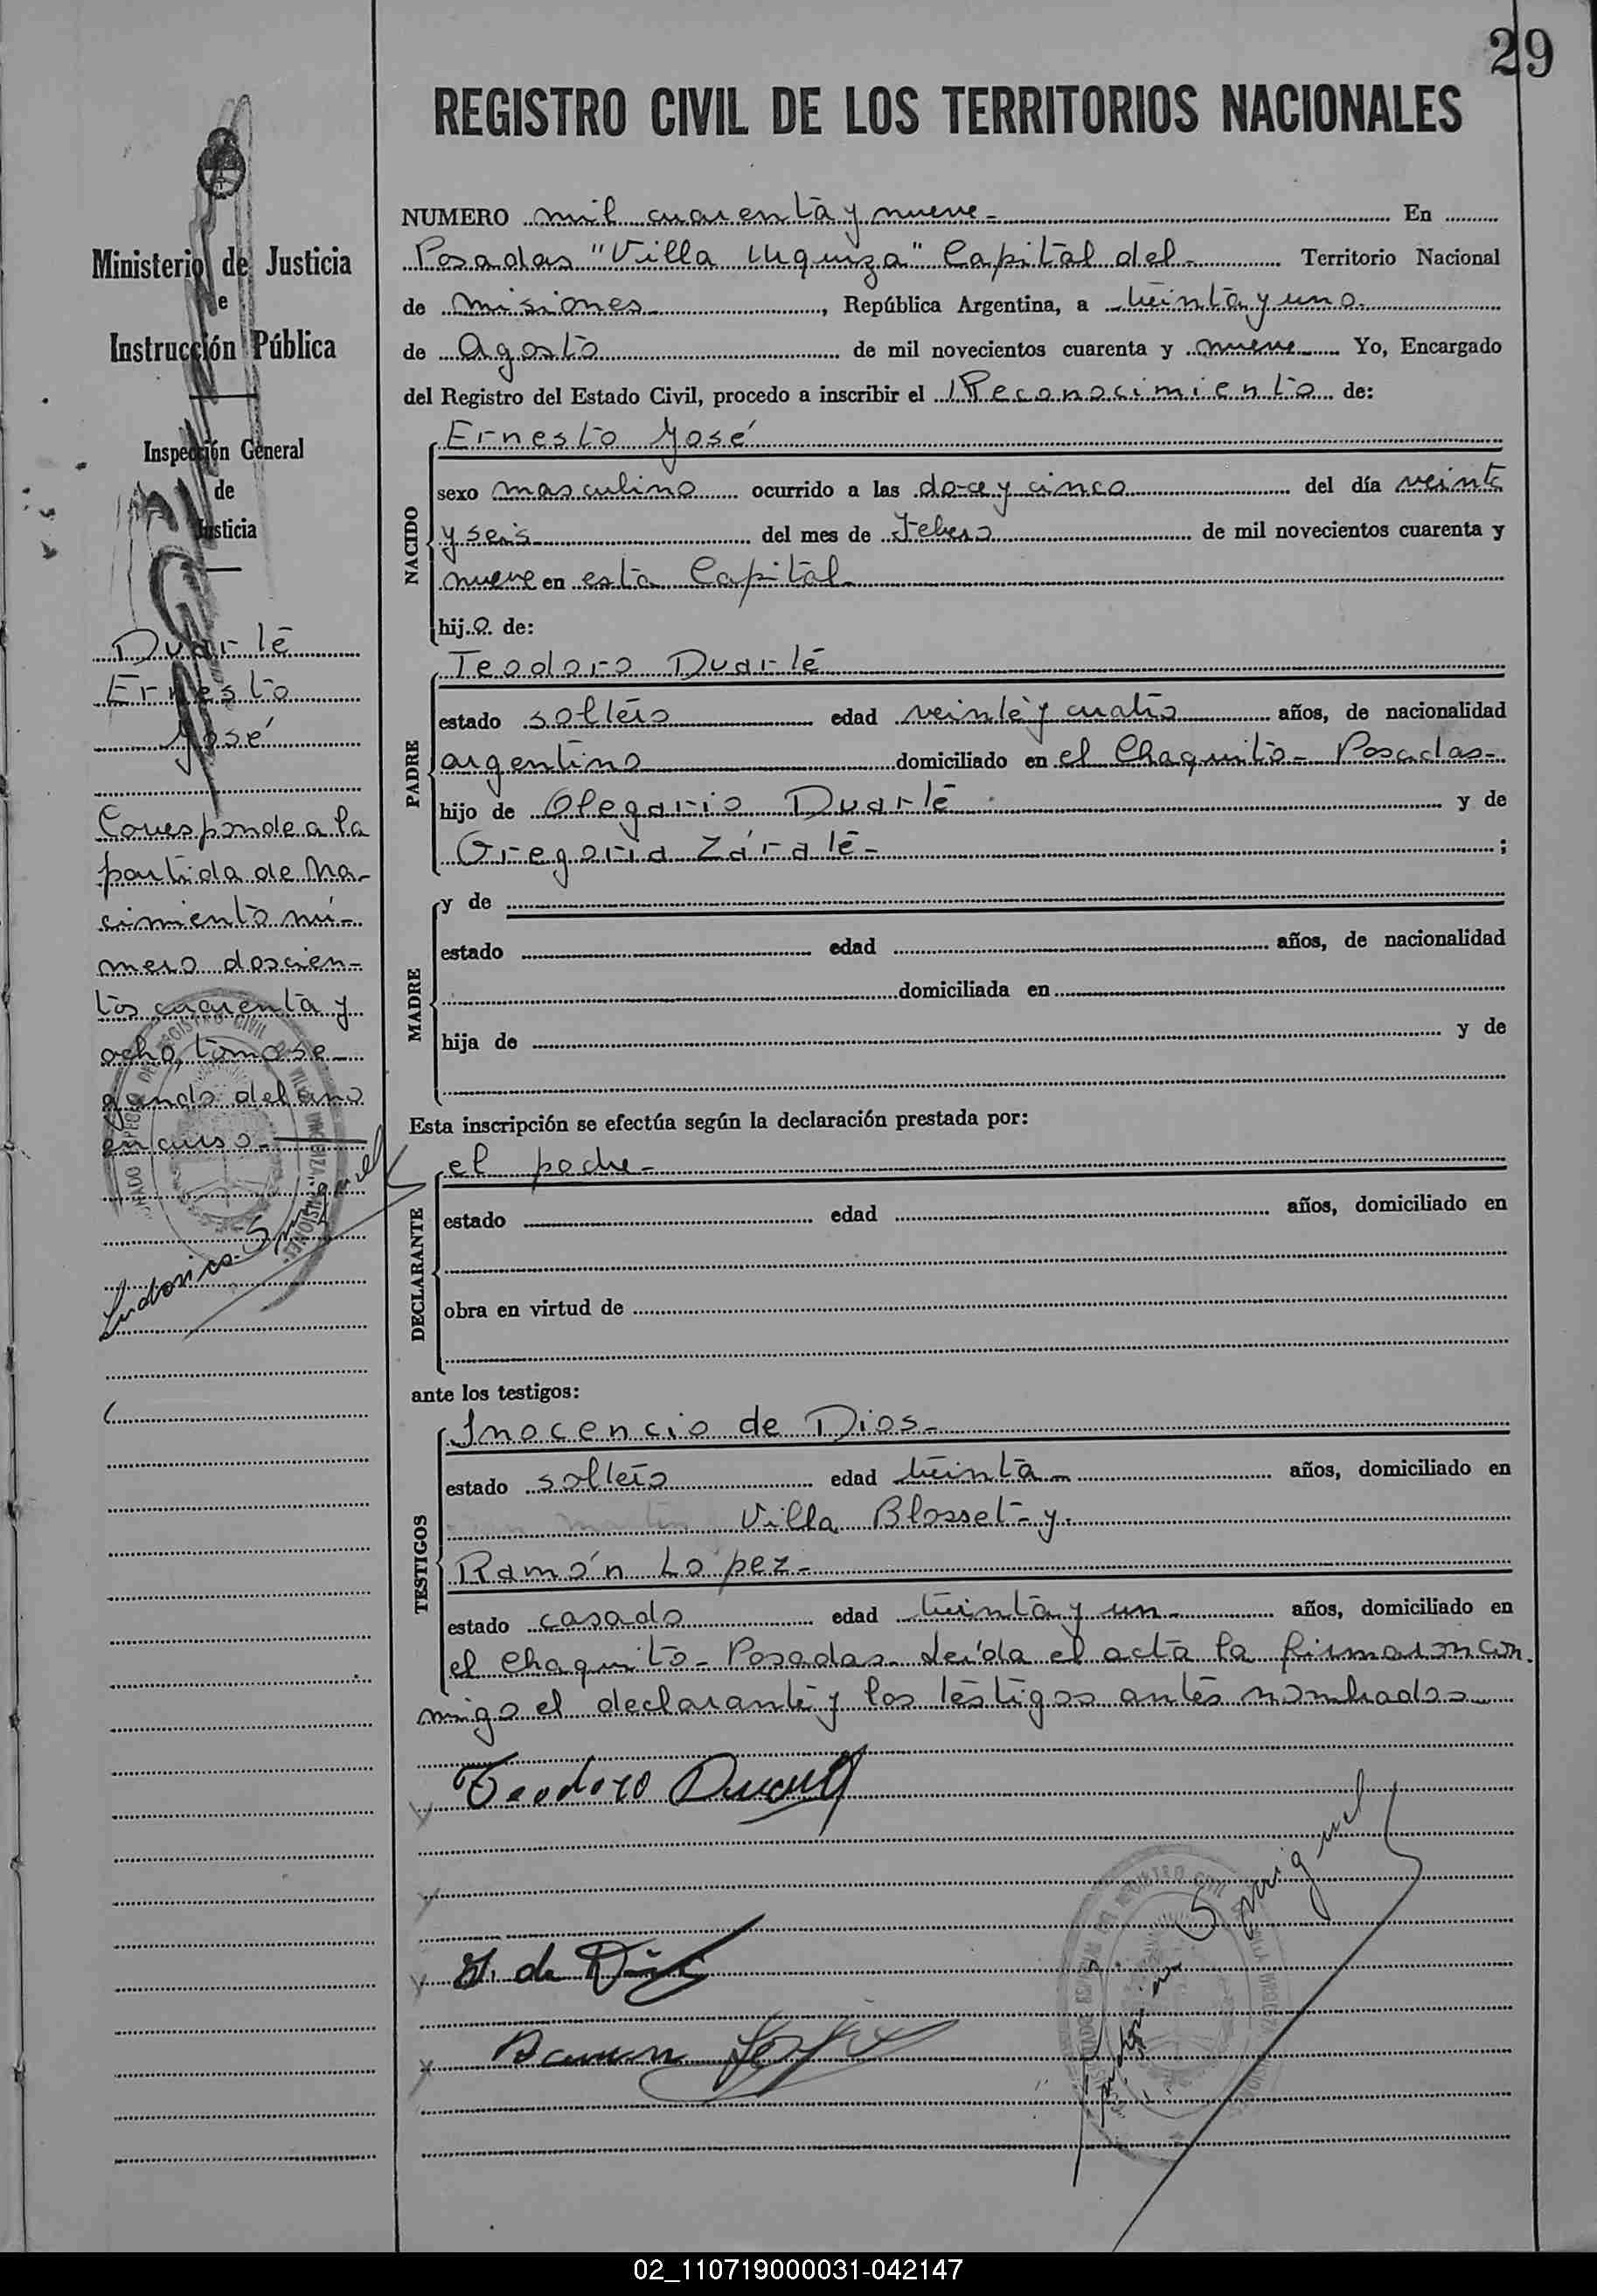 29
REGISTRO CIVIL DE LOS TERRITORIOS NACIONALES
Ministerio de Justicia
e
Instrucción Pública
Inspección General
de
Justicia
Duarte
Ernesto
José
Corresponde a la
partida de Na-
cimiento nú-
mero doscien-
tos cuarenta y
ocho, tomo se-
gundo del año
en curso.-
NUMERO mil cuarenta y nueve- En
Posadas "Villa Urquiza" Capital del- Territorio Nacional
de Misiones , República Argentina, a treinta y uno
de Agosto de mil novecientos cuarenta y nueve Yo, Encargado
del Registro del Estado Civil, procedo a inscribir el Reconocimiento de:
NACIDO
Ernesto José
sexo masculino ocurrido a las doce y cinco del día veinte
y seis del mes de Febrero de mil novecientos cuarenta y
nueve en esta Capital
hijo de:
PADRE
Teodoro Duarte
estado soltero edad veinte y cuatro años, de nacionalidad
argentino domiciliado en el Chaquito- Posadas-
hijo de Olegario Duarte y de
Gregoria Zárate- ;
MADRE
y de
estado edad años, de nacionalidad
domiciliada en
hija de y de
Esta inscripción se efectúa según la declaración prestada por:
DECLARANTE
el padre-
estado edad años, domiciliado en
obra en virtud de
ante los testigos:
TESTIGOS
Inocencio de Dios-
estado soltero edad treinta años, domiciliado en
Villa Blosset- y
Ramón Lopez-
estado casado edad treinta y un años, domiciliado en
el Chaquito- Posadas- Leída el acta la firmaron con-
migo el declarante y los testigos antes nombrados
Teodoro Duarte
I. de Dios
Ramon Lopez
02_110719000031-042147